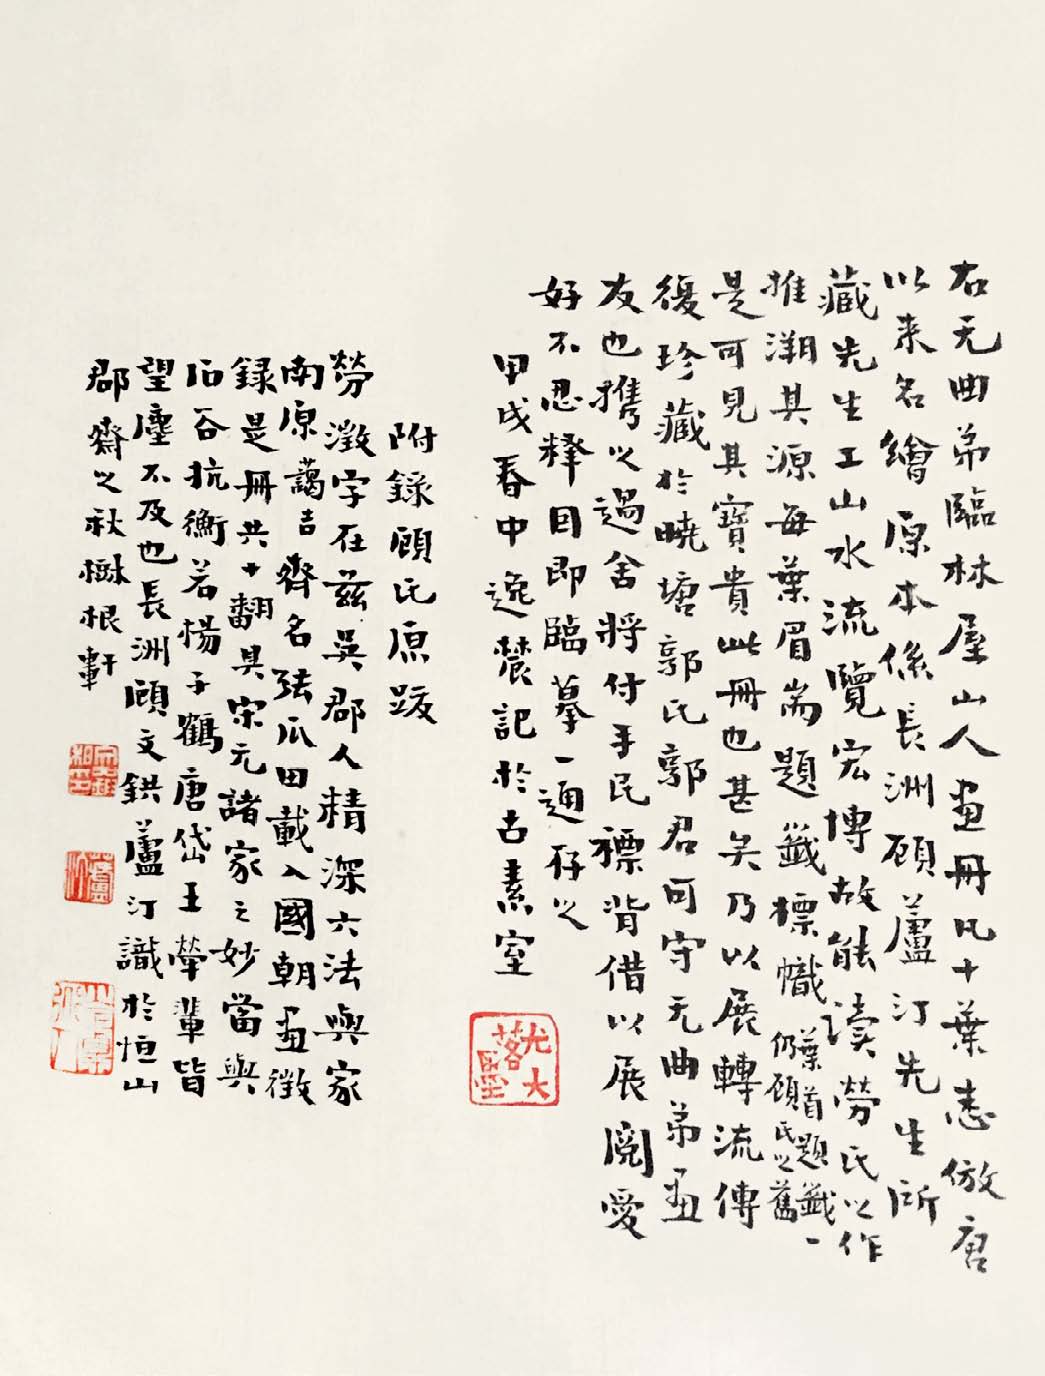 右无曲弟臨林屋山人畫冊凡十葉悉倣唐
以来名繪原本係長洲顧蘆汀先生所
藏先生工山水流覽宏博故能读勞氏以作
推溯其源每葉眉耑題籤標幟
葉首題籤一
仍顧氏之舊
是可見其寶貴此冊也甚矣乃以展轉流傳
復珍藏於曉塘郭氏郭君可守无曲弟画
友也攜以過舍將付手民褾背借以展閱愛
好不忍釋目即臨摹一通存之
甲戌春中逸農記於古素室
附錄顧氏原跋
勞澂字在兹吳郡人精深六法與家
南原藹吉齊名張瓜田載入國朝画徵
録是冊共十翻具宋元諸家之妙當與
石谷抗衡若楊子鶴唐岱王犖輩皆
望塵不及也長洲顧文鉷蘆汀識於恒山
郡齋之秋樹根軒